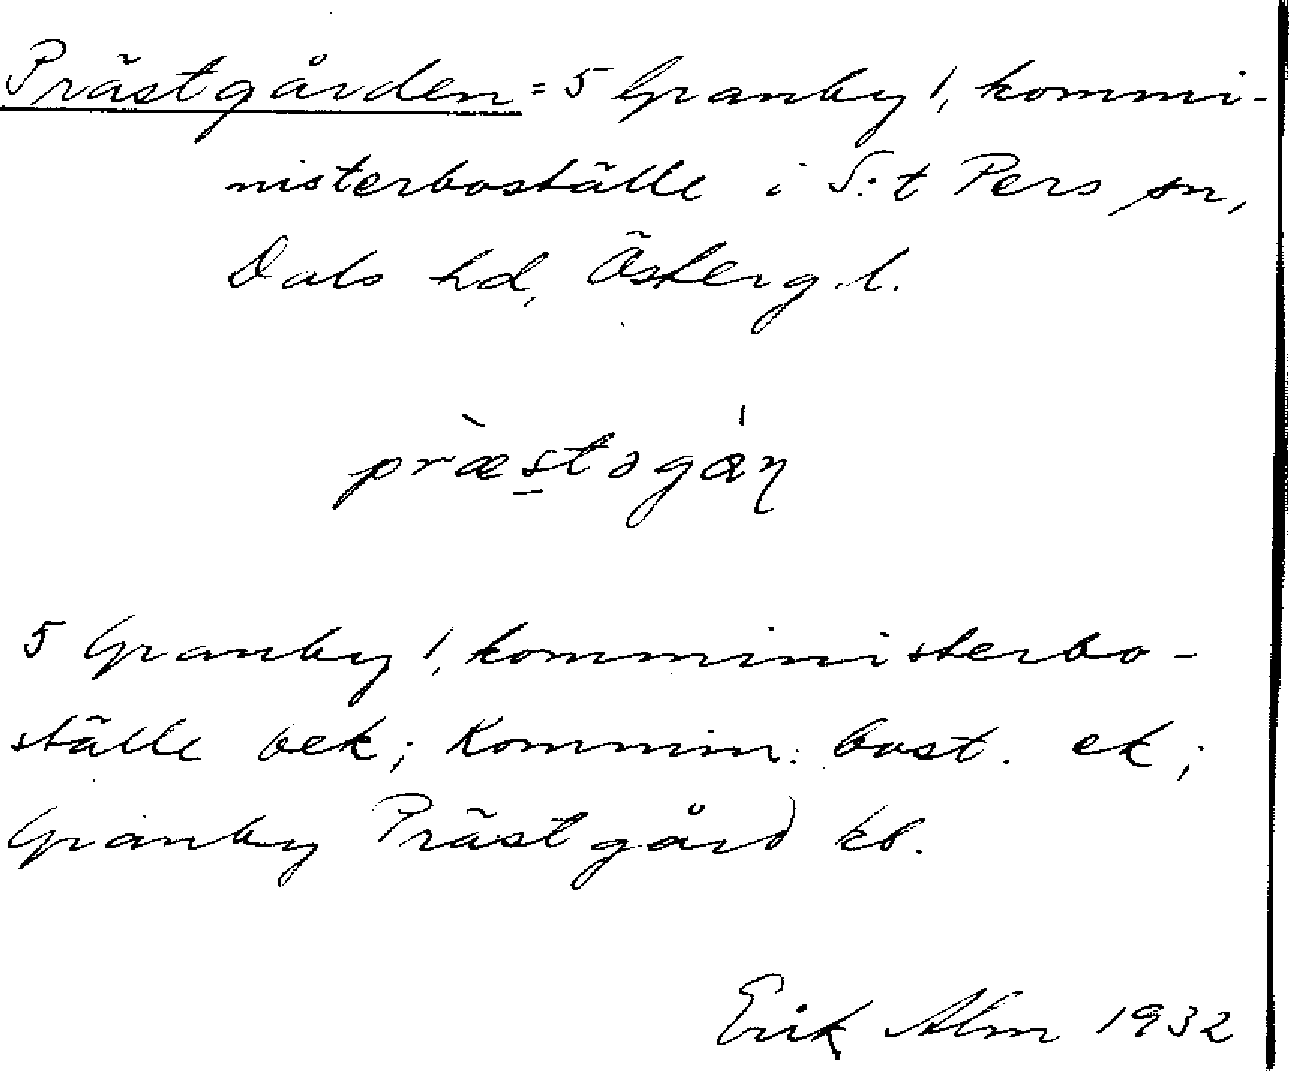 Prästgården = 5 Granby 1, kommi-
nisterboställe i S:t Pers sn,
Dals hd, Österg. l.
præ̀stəgáɳ
5 Granby 1, komministerbo-
ställe bek; Kommin. bost. ek;
Granby Prästgård kb.
Erik Alm 1932